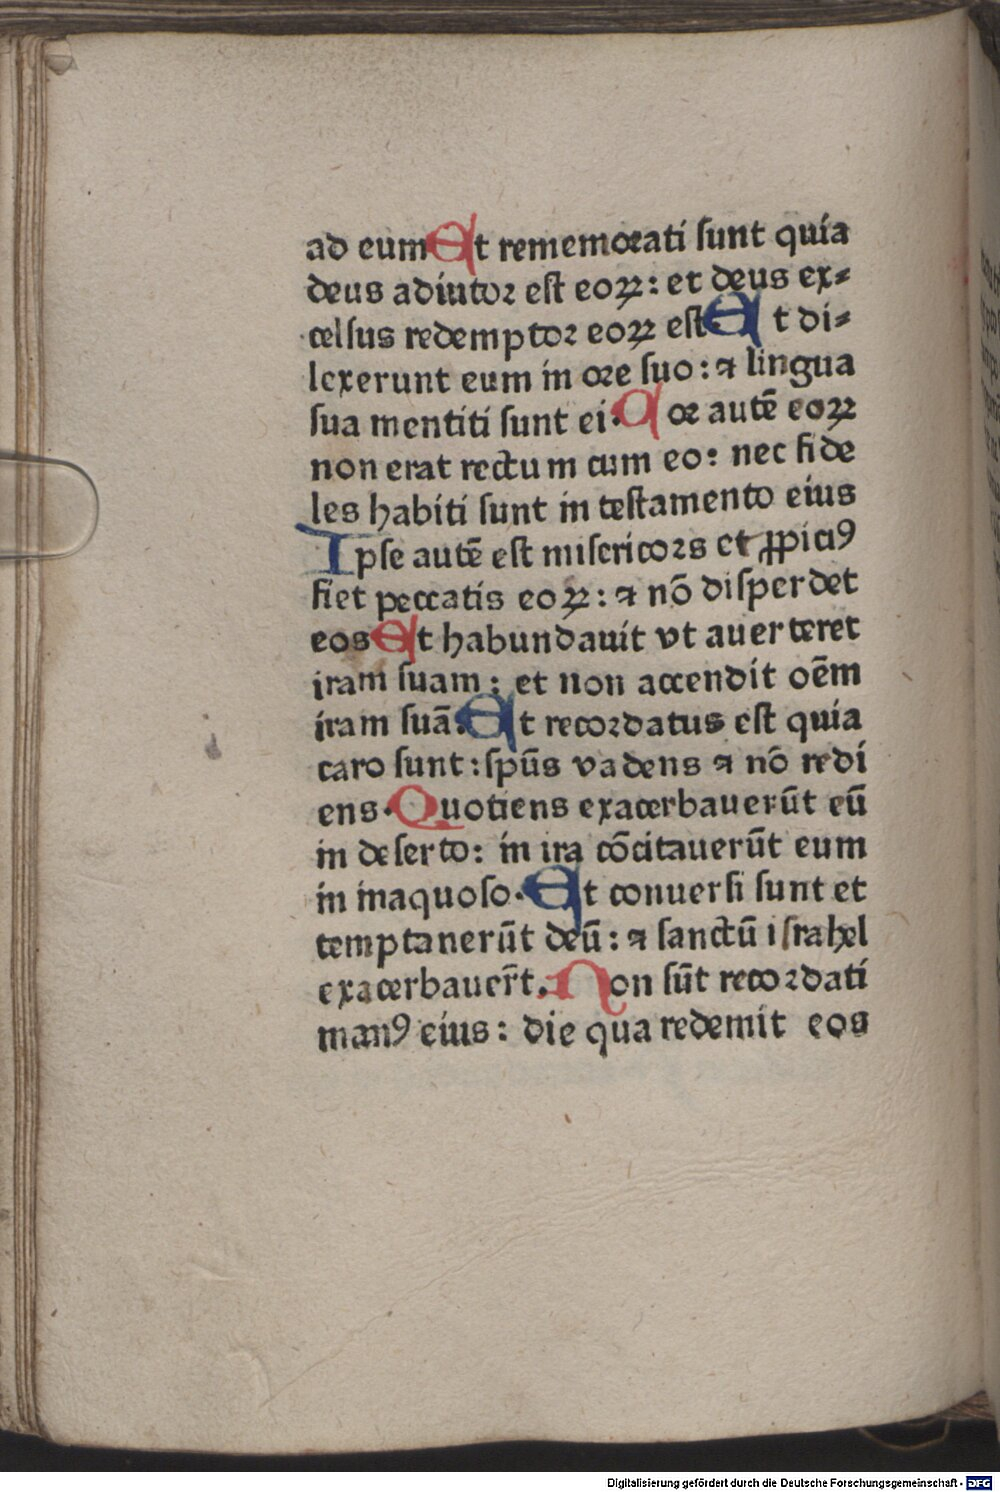 ad eum Et rememorati sunt quia
deus adiutor est eoꝝ: et deus ex⸗
celsus redemptor eoꝝ est Et di⸗
lexerunt eum in ore suo: ⁊ lingua
sua mentiti sunt ei. Cor autē eoꝝ
non erat rectum cum eo: nec fide
les habiti sunt in testamento eius
Ipse autē est misericors et ꝓpiciꝰ
fiet peccatis eoꝝ: ⁊ nō disperdet
eos Et habundauit vt auerteret
iram suam: et non accendit oēm
iram suā. Et recordatus est quia
caro sunt: spūs vadens ⁊ nō redi
ens. Quotiens exacerbauerūt eū
in deserto: in ira cōcitauerūt eum
in inaquoso. Et conuersi sunt et
temptanerūt deū: ⁊ sanctū israhel
exacerbauer̄t. Non sūt recordati
manꝰ eius: die qua redemit eos
Digitalisierung gefördert durch die Deutsche Forschungsgemeinschaft - DFG